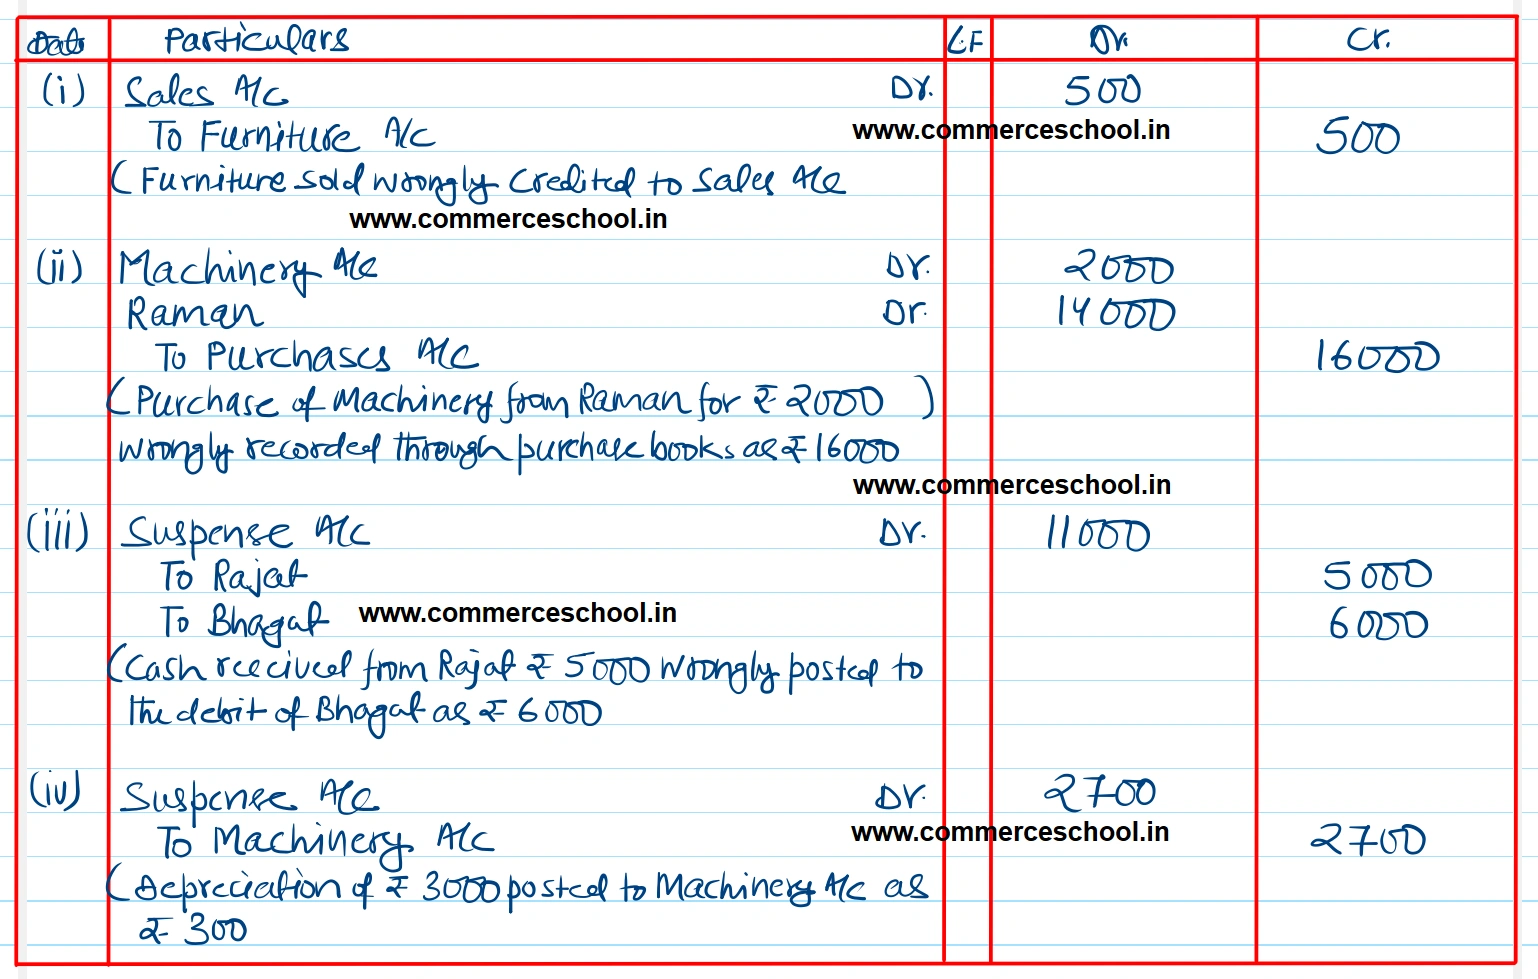 Date Particulars L.F Dr. Cr.
(i) Sales A/c Dr. 500
To Furniture A/c www.commerceschool.in 500
(Furniture sold wrongly credited to Sales A/c
www.commerceschool.in
(ii) Machinery A/c Dr. 2000
Raman Dr. 14000
To Purchases A/c 16000
(Purchase of Machinery from Raman for ₹ 2000 )
wrongly recorded through purchase books as ₹ 16000
www.commerceschool.in
(iii) Suspense A/c Dr. 11000
To Rajat 5000
To Bhagat www.commerceschool.in 6000
(Cash received from Rajat ₹ 5000 wrongly posted to
the debit of Bhagat as ₹ 6000
(iv) Suspense A/c Dr. 2700
To Machinery A/c www.commerceschool.in 2700
(Depreciation of ₹ 3000 posted to Machinery A/c as
₹ 300